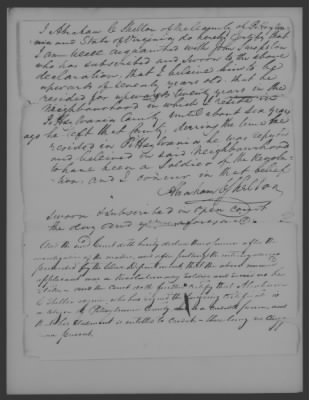 I Abraham C Shelton of the County of Pittsylva
nia and State of Virginia do hereby Certify that
I am well acquainted with John
who has subscribed and Sworn to the above
declaration, that I believe him to be
upwards of Seventy years old, that he
resided for upwards of twenty years in the
neighbourhood in which I reside in
Pittsylvania County until about six years
ago he left that County, during the time he
resided in Pittsylvania he was reputed
and believed in said neighbourhood
to have been a Soldier of the Revolu-
tion, and I concur in that belief
Abraham C Shelton
Sworn & subscribed in open court
the day and year aforesaid.
And the said Court doth hereby declare their opinion after the
investigation of the matter, and after putting the interrogatories
prescribed by the War Department that the above named
applicant was a revolutionary soldier and served as he
states - and the Court doth further certify that Abraham
C Shelton who has signed the foregoing Certificate is
a in Pittsylvania County and is a
that his statement is entitled to credit - there being no Clergy
man